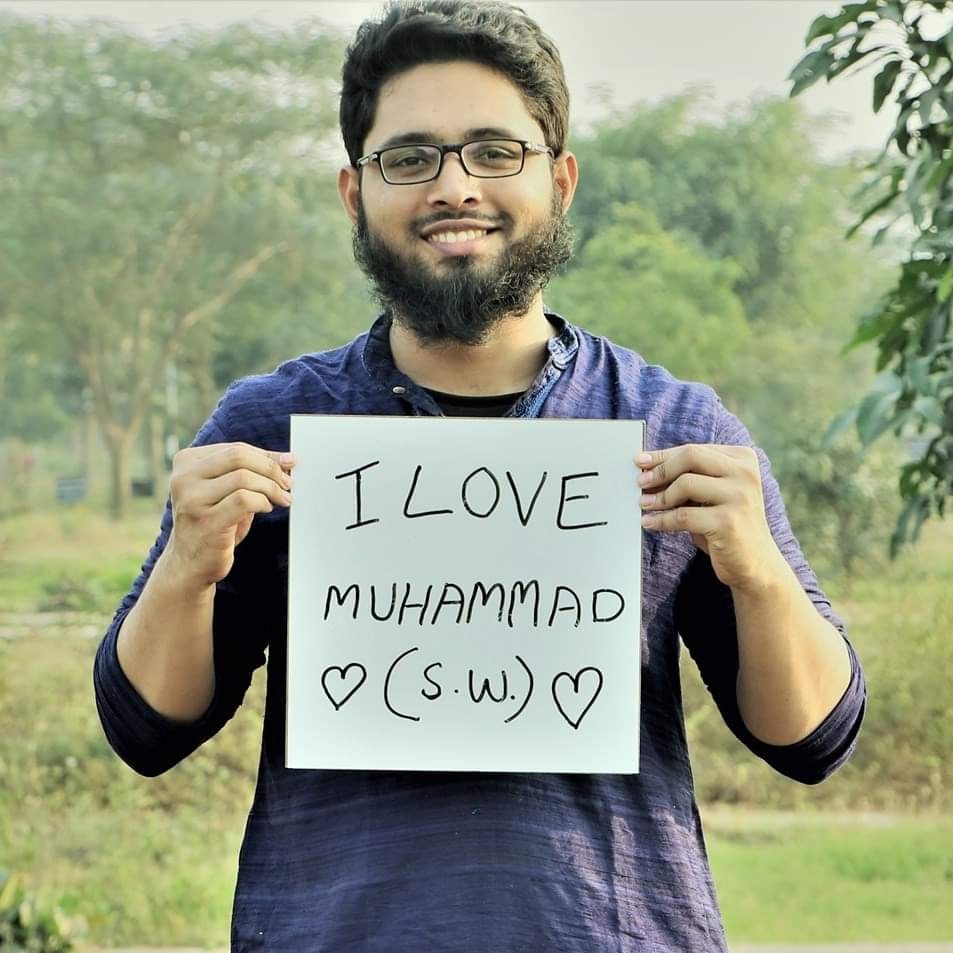 I LOVE
MUHAMMAD
♡ (S.W.) ♡